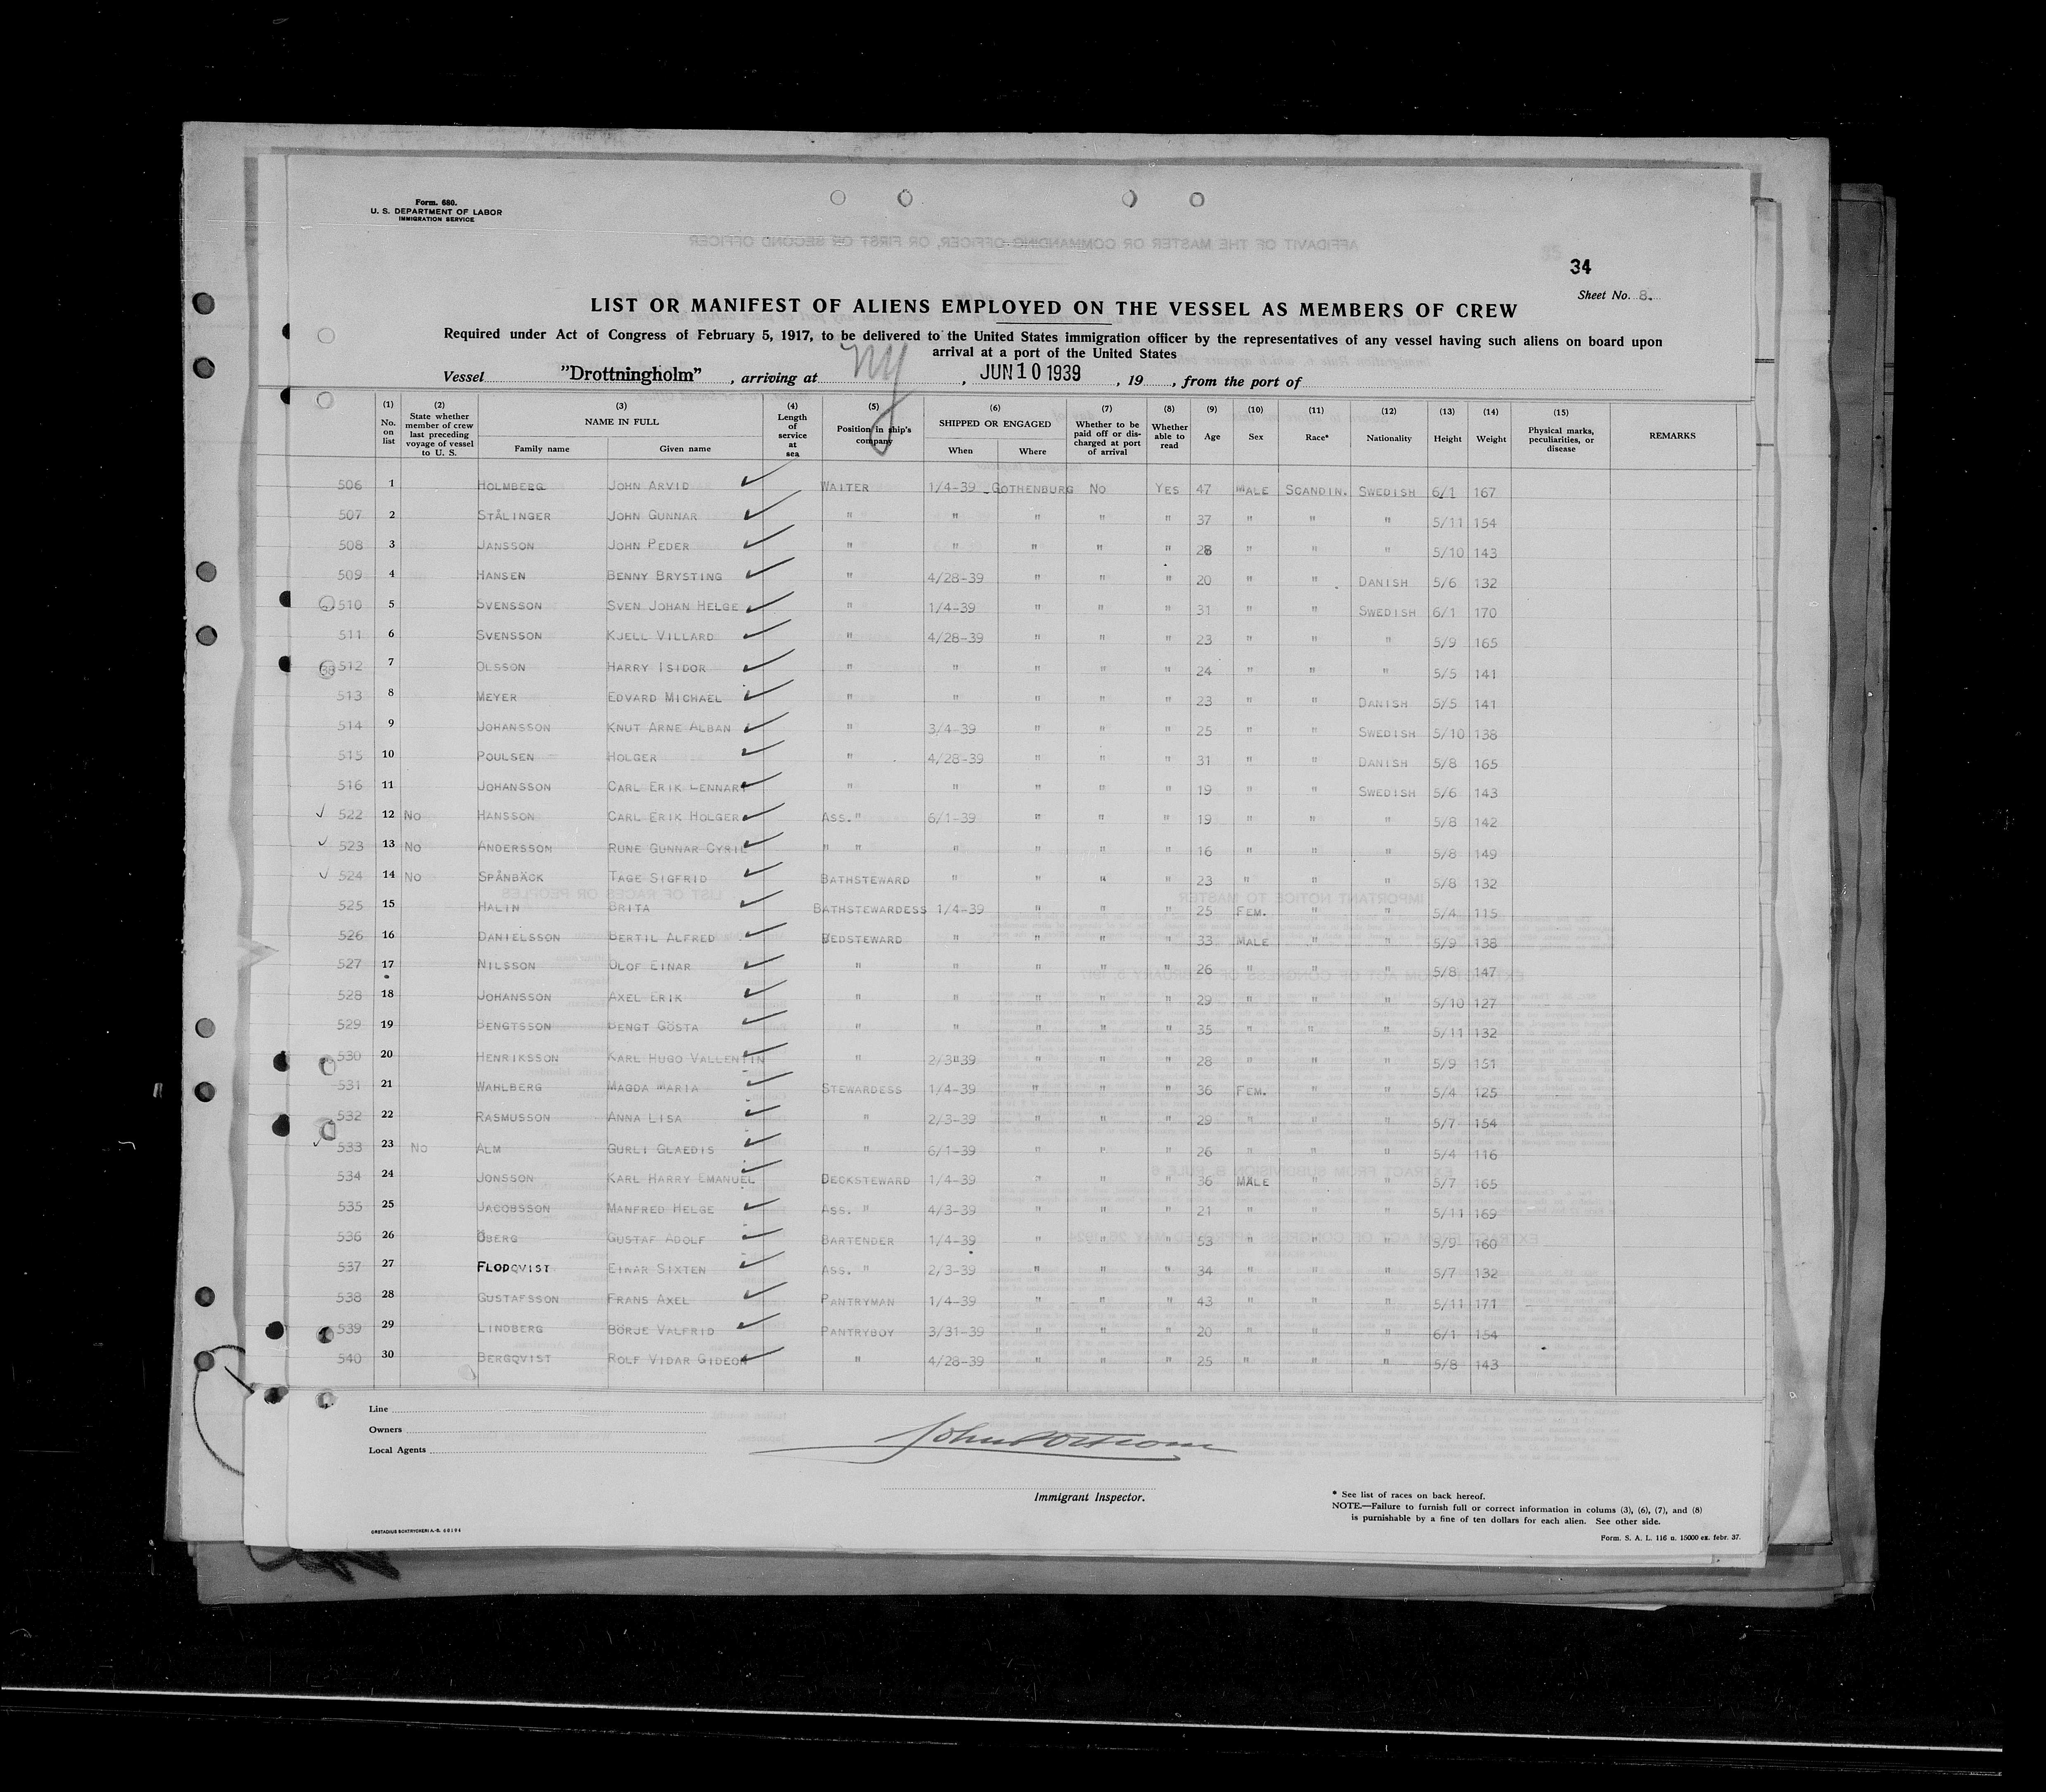 Form. 680.
U. S. DEPARTMENT OF LABOR
IMMIGRATION SERVICE
AFFIDAVIT OF THE MASTER OR COMMANDING OFFICER, OR FIRST OR SECOND OFFICER
34
Sheet No. 8.
LIST OR MANIFEST OF ALIENS EMPLOYED ON THE VESSEL AS MEMBERS OF CREW
Required under Act of Congress of February 5, 1917, to be delivered to the United States immigration officer by the representatives of any vessel having such aliens on board upon
arrival at a port of the United States
Vessel "Drottningholm" , arriving at NY , JUN 10 1939 , 19 , from the port of
(1) No. on list (2) State whether member of crew last preceding voyage of vessel to U. S. (3) NAME IN FULL Family name Given name (4) Length of service at sea (5) Position in ship's company (6) SHIPPED OR ENGAGED When Where (7) Whether to be paid off or discharged at port of arrival (8) Whether able to read (9) Age (10) Sex (11) Race* (12) Nationality (13) Height (14) Weight (15) Physical marks, peculiarities, or disease REMARKS
506 1 HOLMBERG JOHN ARVID WAITER 1/4-39 GOTHENBURG NO YES 47 MALE SCANDIN. SWEDISH 6/1 167
507 2 STÅLINGER JOHN GUNNAR " " " " " 37 " " " 5/11 154
508 3 JANSSON JOHN PEDER " " " " " 28 " " " 5/10 143
509 4 HANSEN BENNY BRYSTING " 4/28-39 " " " 20 " " DANISH 5/6 132
510 5 SVENSSON SVEN JOHAN HELGE " 1/4-39 " " " 31 " " SWEDISH 6/1 170
511 6 SVENSSON KJELL VILLARD " 4/28-39 " " " 23 " " " 5/9 165
512 7 OLSSON HARRY ISIDOR " " " " " 24 " " " 5/5 141
513 8 MEYER EDVARD MICHAEL " " " " " 23 " " DANISH 5/5 141
514 9 JOHANSSON KNUT ARNE ALBAN " 3/4-39 " " " 25 " " SWEDISH 5/10 138
515 10 POULSEN HOLGER " 4/28-39 " " " 31 " " DANISH 5/8 165
516 11 JOHANSSON CARL ERIK LENNART " " " " " 19 " " SWEDISH 5/6 143
522 12 NO HANSSON CARL ERIK HOLGER ASS. " 6/1-39 " " " 19 " " " 5/8 142
523 13 NO ANDERSSON RUNE GUNNAR CYRIL " " " " " " 16 " " " 5/8 149
524 14 NO SPÅNBÄCK TAGE SIGFRID BATHSTEWARD " " " " 23 " " " 5/8 132
525 15 HALIN BRITA BATHSTEWARDESS 1/4-39 " " " 25 FEM. " " 5/4 115
526 16 DANIELSSON BERTIL ALFRED BEDSTEWARD " " " " 33 MALE " " 5/9 138
527 17 NILSSON OLOF EINAR " " " " " 26 " " " 5/8 147
528 18 JOHANSSON AXEL ERIK " " " " " 29 " " " 5/10 127
529 19 BENGTSSON BENGT GÖSTA " " " " " 35 " " " 5/11 132
530 20 HENRIKSSON KARL HUGO VALLENTIN " 2/3-39 " " " 28 " " " 5/9 151
531 21 WAHLBERG MAGDA MARIA STEWARDESS 1/4-39 " " " 36 FEM. " " 5/4 125
532 22 RASMUSSON ANNA LISA " 2/3-39 " " " 29 " " " 5/7 154
533 23 NO ALM GURLI GLAEDIS " 6/1-39 " " " 26 " " " 5/4 116
534 24 JONSSON KARL HARRY EMANUEL DECKSTEWARD 1/4-39 " " " 36 MALE " " 5/7 165
535 25 JACOBSSON MANFRED HELGE ASS. " 4/3-39 " " " 21 " " " 5/11 169
536 26 ÖBERG GUSTAF ADOLF BARTENDER 1/4-39 " " " 53 " " " 5/9 160
537 27 FLODQVIST EINAR SIXTEN ASS. " 2/3-39 " " " 34 " " " 5/7 132
538 28 GUSTAFSSON FRANS AXEL PANTRYMAN 1/4-39 " " " 43 " " " 5/11 171
539 29 LINDBERG BÖRJE VALFRID PANTRYBOY 3/31-39 " " " 20 " " " 6/1 154
540 30 BERGQVIST ROLF VIDAR GIDEON " 4/28-39 " " " 25 " " " 5/8 143
Line
Owners
Local Agents
Immigrant Inspector.
* See list of races on back hereof.
NOTE.—Failure to furnish full or correct information in colums (3), (6), (7), and (8)
is punishable by a fine of ten dollars for each alien. See other side.
Form. S. A. L. 116 a. 15000 ex. febr. 37.